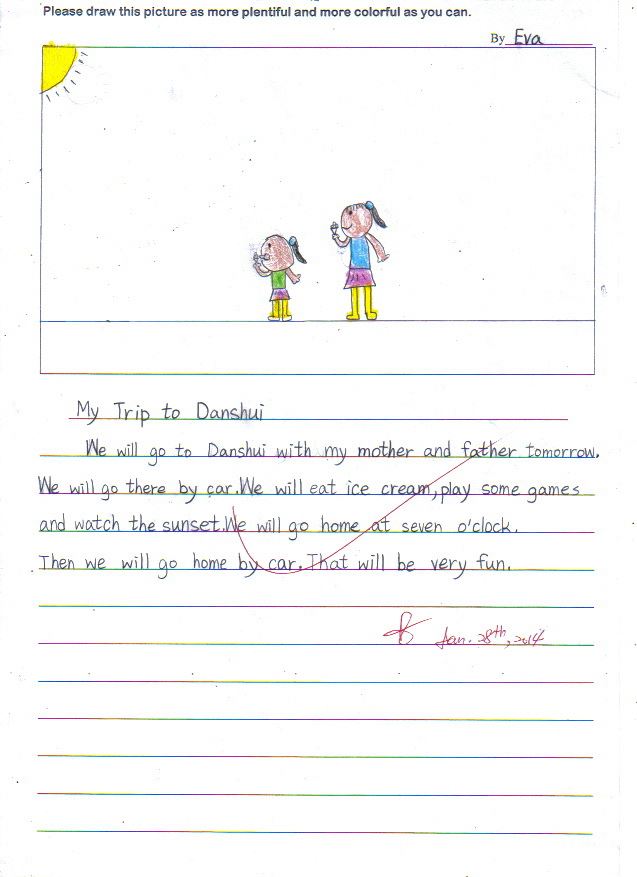 Please draw this picture as more plentiful and more colorful as you can.
By Eva
My Trip to Danshui
We will go to Danshui with my mother and father tomorrow.
We will go there by car.We will eat ice cream,play some games
and watch the sunset.We will go home at seven o'clock.
Then we will go home by car.That will be very fun.
Jan. 28th, 2014